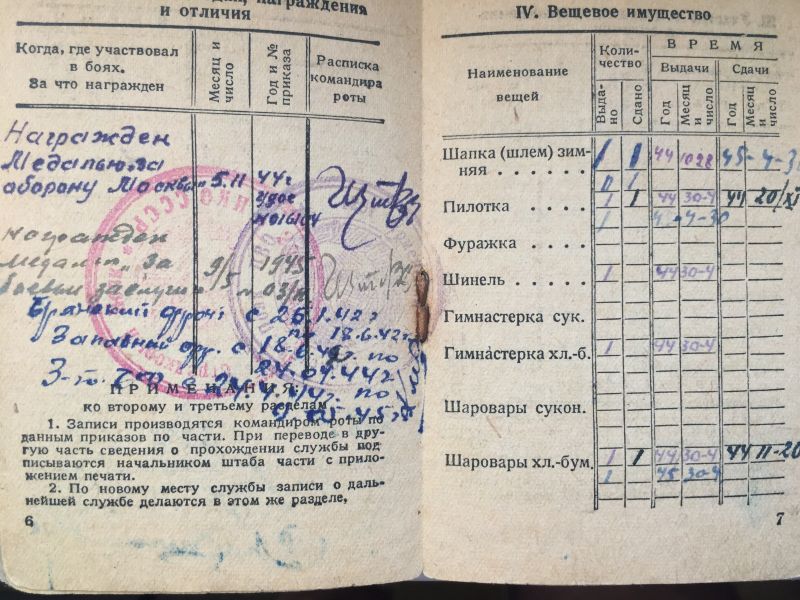 награждения
и отличия
Когда, где участвовал
в боях.
За что награжден
Месяц и
число
Год и №
приказа
Расписка
командира
роты
Награжден
Медалью за
оборону Москвы 5.11 44г
Награжден
медаль за 9/5 1945
боевы заслуги
Брянский фронт с 26.1.42г
по 18.6.42г
Западный фр. с 18.6.42г по
24.04.44г
3-го
ПРИМЕЧАНИЯ:
ко второму и третьему разделам
1. Записи производятся командиром роты по
данным приказов по части. При переводе в дру-
гую часть сведения о прохождении службы под-
писываются начальником штаба части с прило-
жением печати.
2. По новому месту службы записи о даль-
нейшей службе делаются в этом же разделе,
6
IV. Вещевое имущество
Наименование
вещей
Коли-
чество
ВРЕМЯ
Выдачи
Сдачи
Выда-
но
Сдано
Год
Месяц
и
число
Год
Месяц
и
число
Шапка (шлем) зим-
няя . . . . . . 1 1 44 1022 45-4-30
Пилотка . . . . 1 1 44 30-4 44 20/XI
Фуражка . . . .
Шинель . . . . 1 44 30-4
Гимнастерка сук.
Гимнастерка хл.-б. 1 44 30-4
Шаровары сукон.
Шаровары хл.-бум. 1 1 44 30-4 44 11-20
1 45 30-4
7